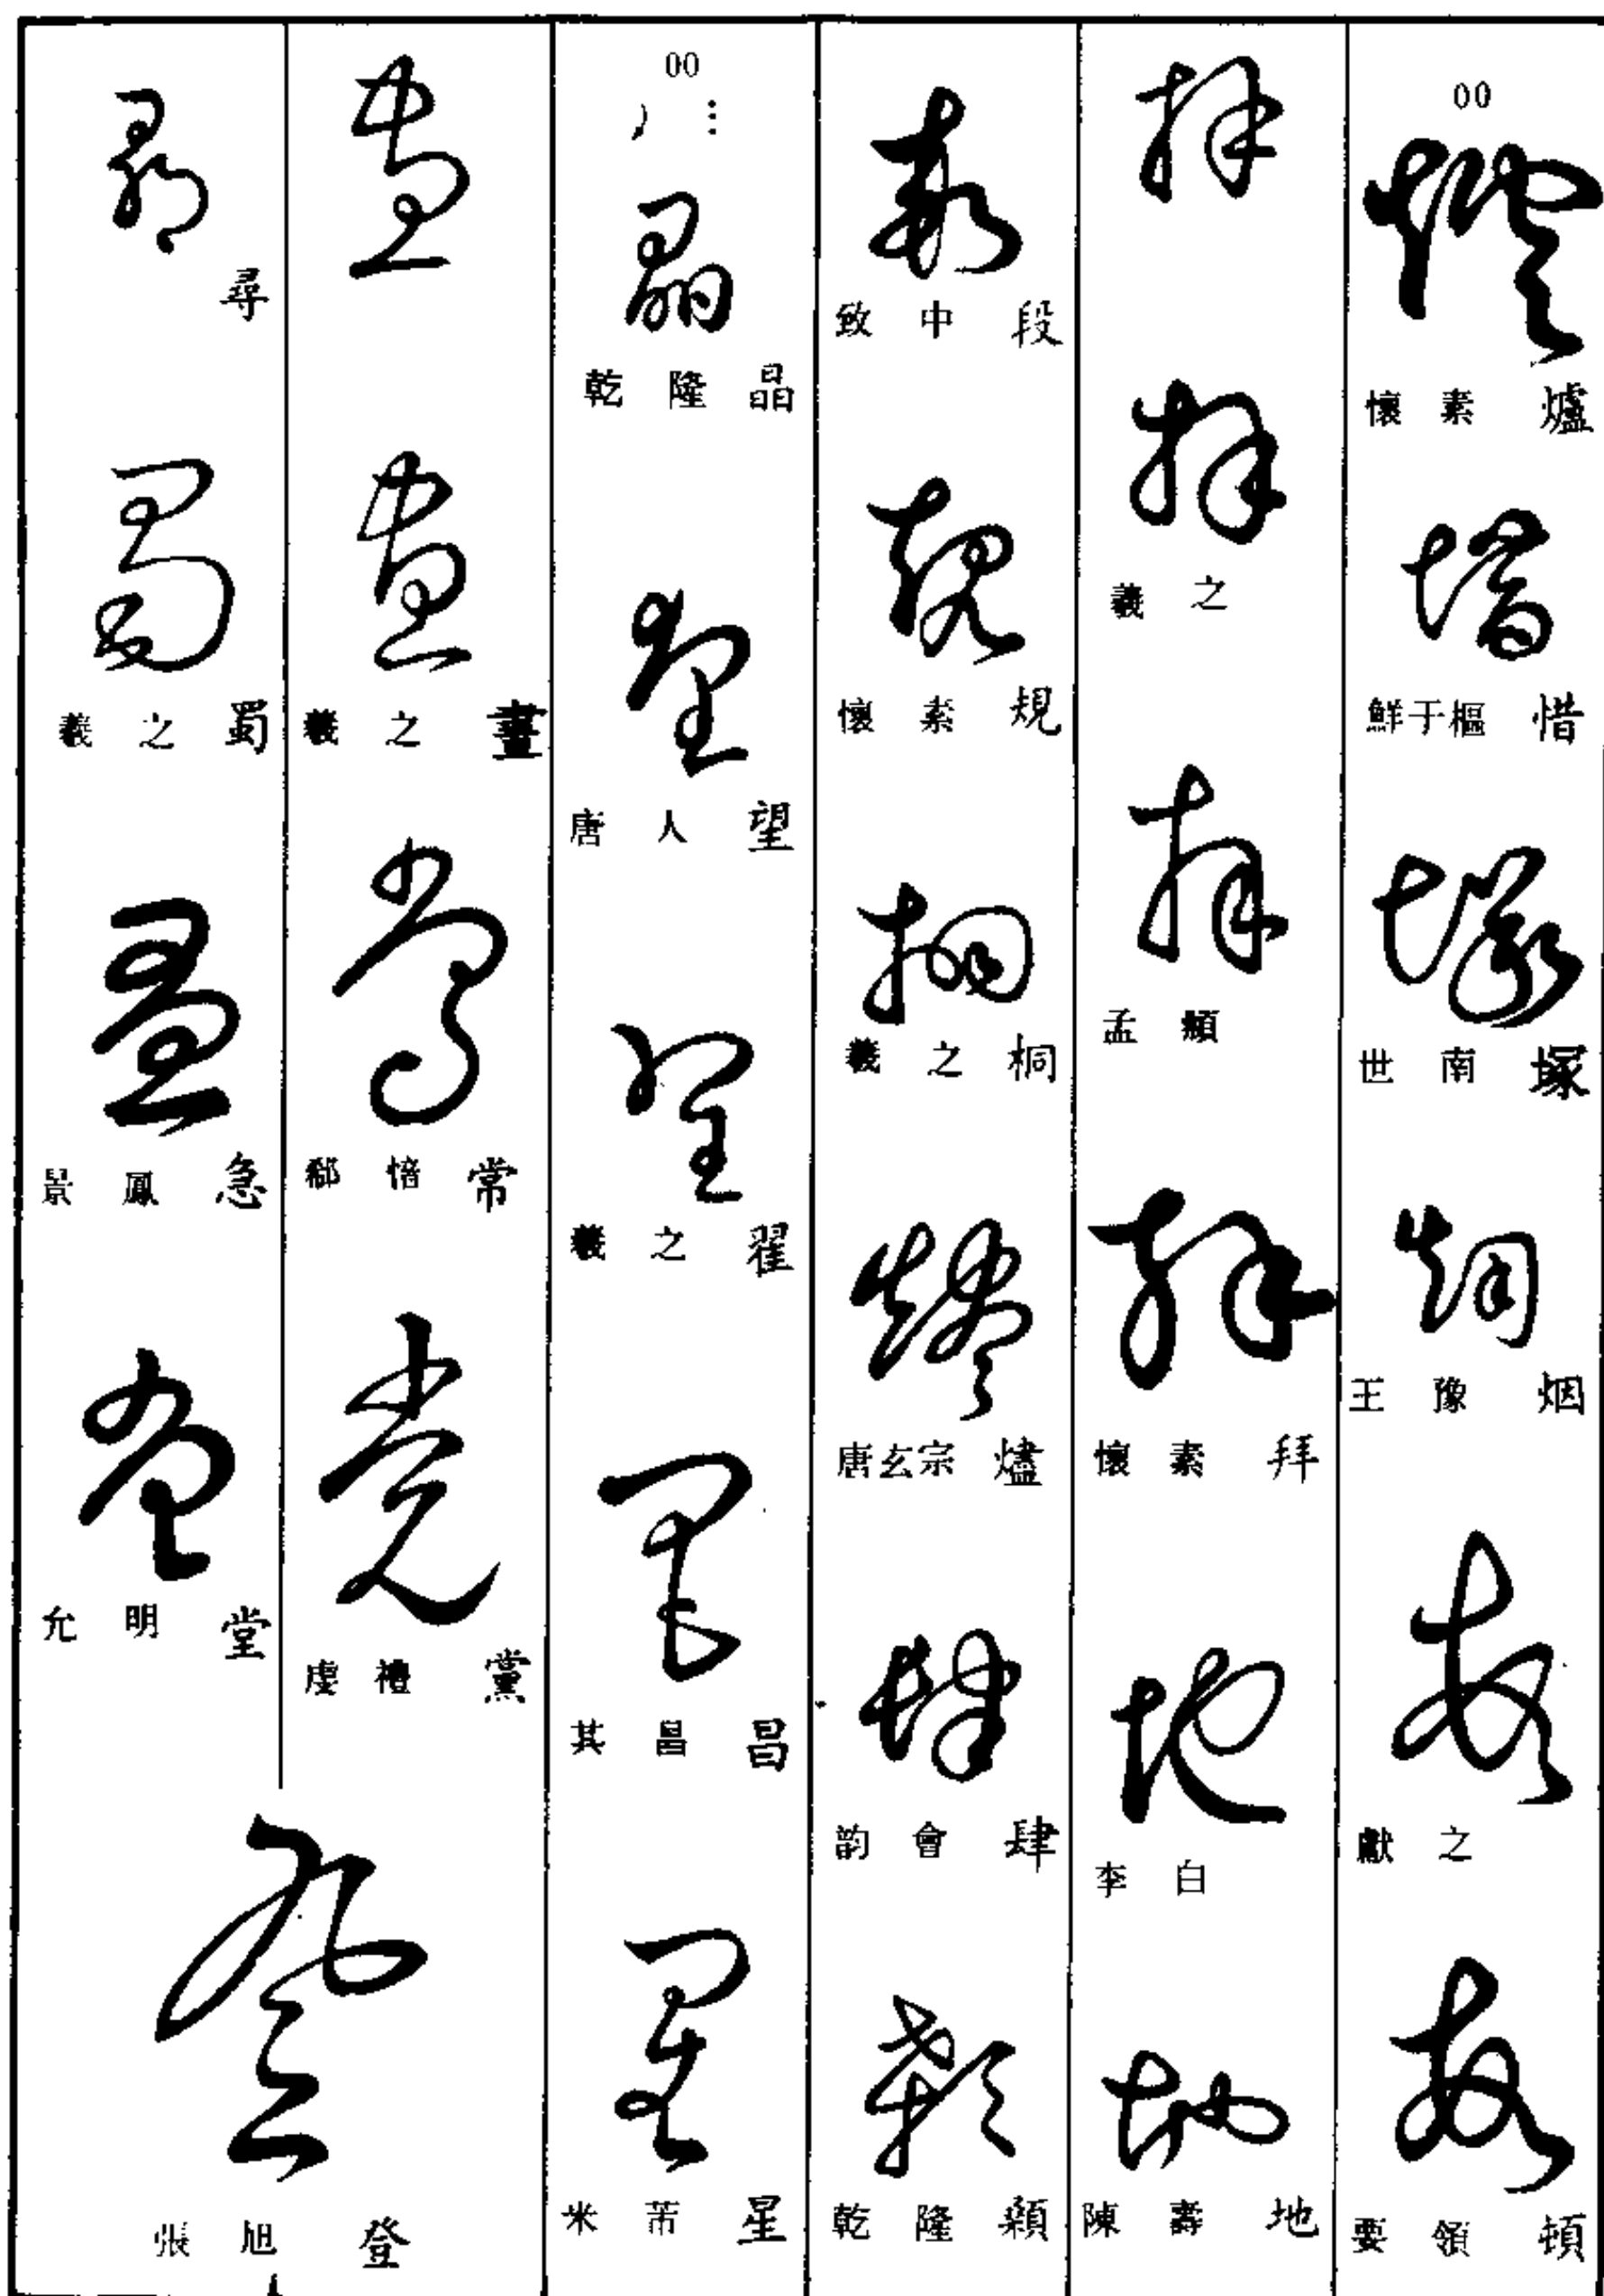 00
懷素 爐
鮮于樞 惜
世南 塚
王豫 烟
獻之
要領 頓
羲之
孟頫
懷素 拜
李白
陳壽 地
致中 段
懷素 規
羲之 桐
唐玄宗 燼
韵會 肆
乾隆 顙
00
乾隆 晶
唐人 望
羲之 翟
其昌 昌
米芾 星
羲之 晝
郗愔 常
虔禮 黨
尋
羲之 蜀
景鳳 急
允明 堂
張旭 登